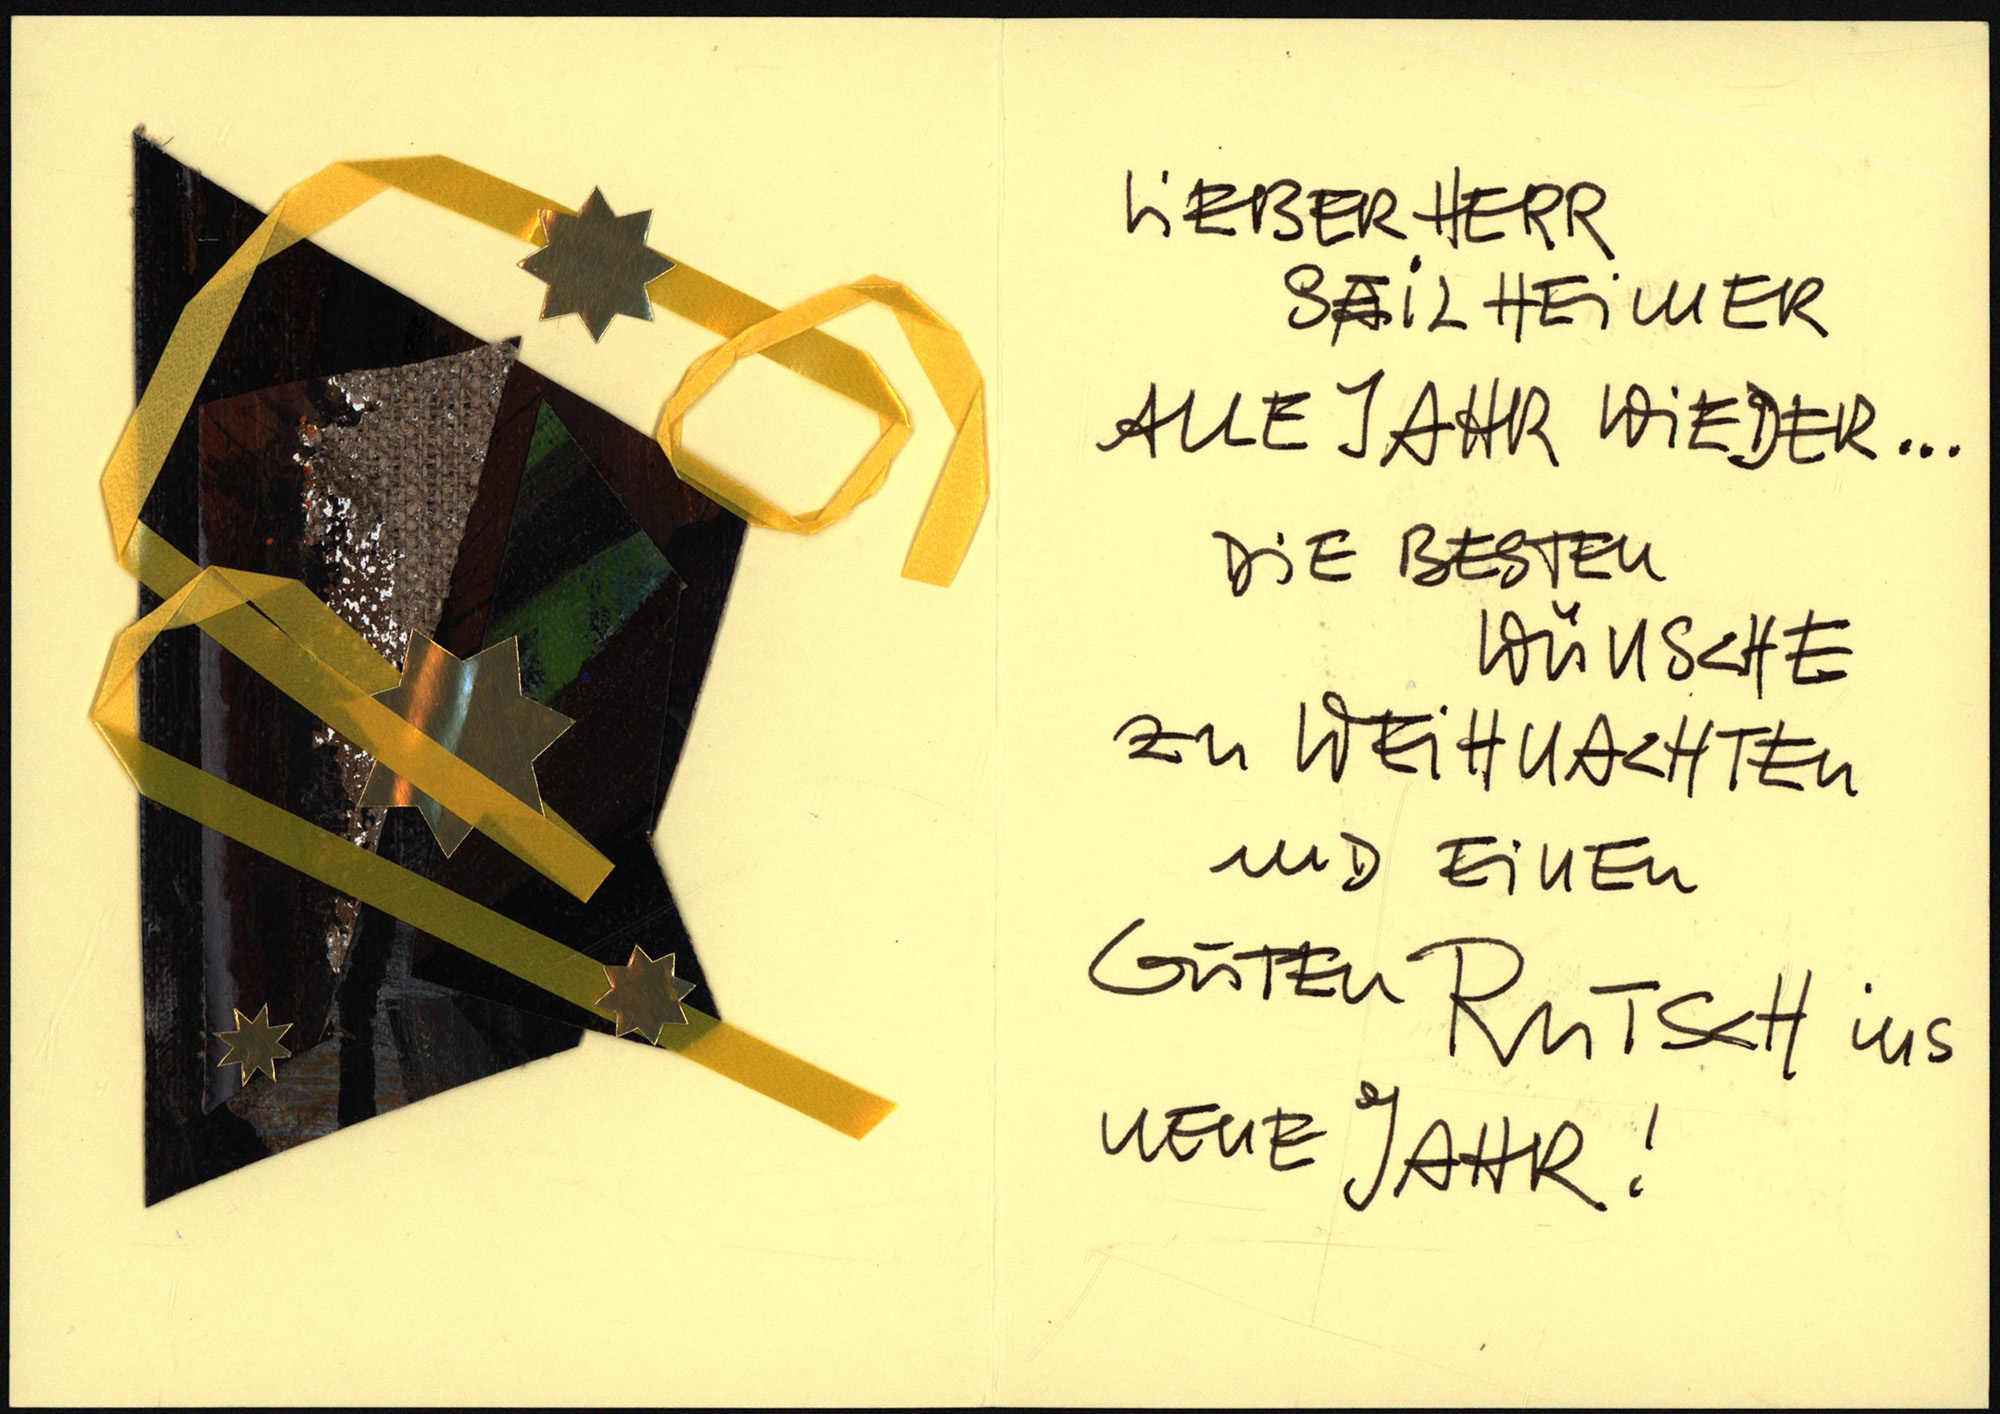 LiEBER HERR
SAiLHEiMER
ALLE JAHR WiEDER...
DiE BESTEN
WÜNSCHE
ZU WEiHNACHTEN
UND EiNEN
GUTEN RUTSCH ins
NEUE JAHR!